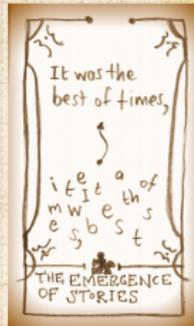 It was the
best of times,
i e a of
t t I t th
m w e s
e s, b s t
THE EMERGENCE
OF STORIES